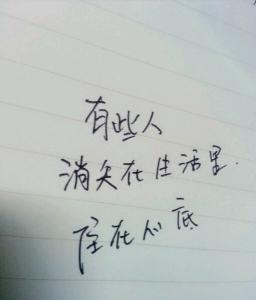 有些人
消失在生活里.
住在心底